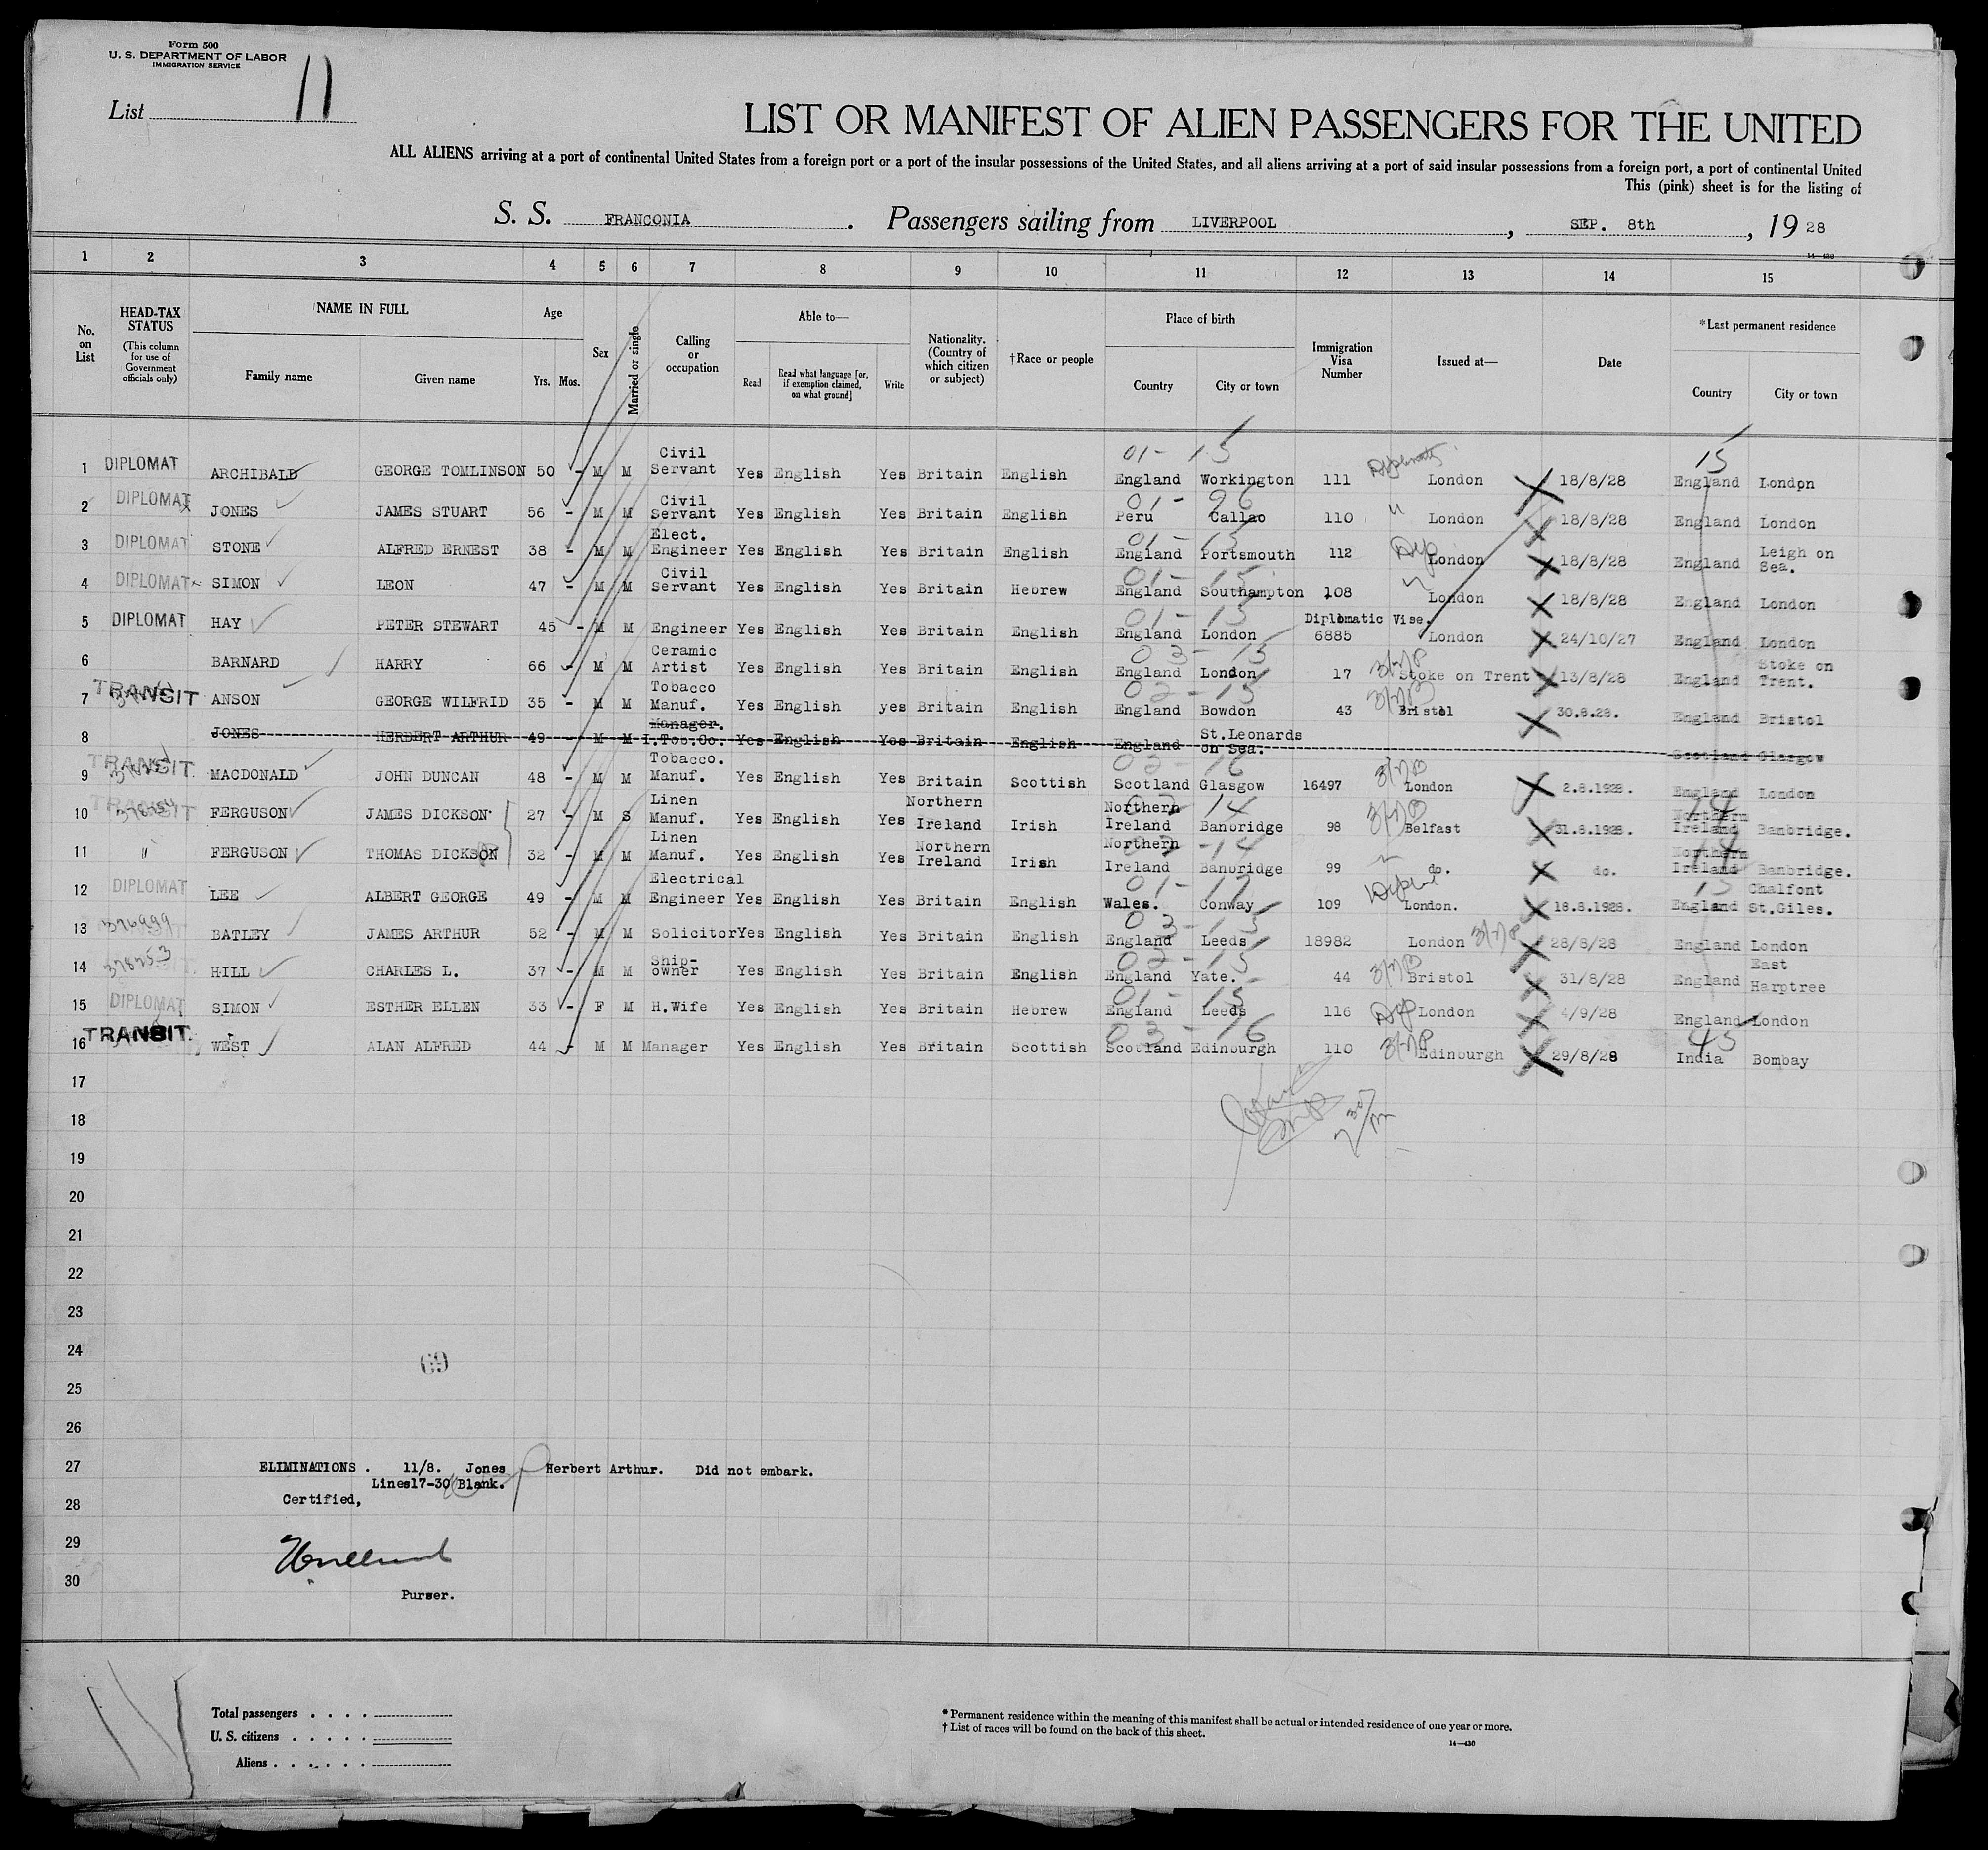 Form 500
U. S. DEPARTMENT OF LABOR
IMMIGRATION SERVICE
List 11
LIST OR MANIFEST OF ALIEN PASSENGERS FOR THE UNITED
ALL ALIENS arriving at a port of continental United States from a foreign port or a port of the insular possessions of the United States, and all aliens arriving at a port of said insular possessions from a foreign port, a port of continental United
This (pink) sheet is for the listing of
S. S. FRANCONIA. Passengers sailing from LIVERPOOL, SEP. 8th, 19 28
14-430
1 2 3 4 5 6 7 8 9 10 11 12 13 14 15
No. on List
HEAD-TAX STATUS (This column for use of Government officials only)
NAME IN FULL
Family name Given name
Age
Yrs. Mos.
Sex
Married or single
Calling or occupation
Able to—
Read Read what language [or, if exemption claimed, on what ground] Write
Nationality. (Country of which citizen or subject)
†Race or people
Place of birth
Country City or town
Immigration Visa Number
Issued at—
Date
*Last permanent residence
Country City or town
1 DIPLOMAT ARCHIBALD GEORGE TOMLINSON 50 - M M Civil Servant Yes English Yes Britain English 01-15 England Workington 111 London 18/8/28 15 England London
2 DIPLOMAT JONES JAMES STUART 56 - M M Civil Servant Yes English Yes Britain English 01-26 Peru Callao 110 " London 18/8/28 England London
3 DIPLOMAT STONE ALFRED ERNEST 38 - M M Elect. Engineer Yes English Yes Britain English 01-15 England Portsmouth 112 Dip London 18/8/28 England Leigh on Sea.
4 DIPLOMAT SIMON LEON 47 - M M Civil Servant Yes English Yes Britain Hebrew 01-15 England Southampton 108 " London 18/8/28 England London
5 DIPLOMAT HAY PETER STEWART 45 - M M Engineer Yes English Yes Britain English 01-15 England London Diplomatic Vise. 6885 London 24/10/27 England London
6 BARNARD HARRY 66 - M M Ceramic Artist Yes English Yes Britain English 03-15 England London 17 Stoke on Trent 13/8/28 England Stoke on Trent.
7 TRANSIT ANSON GEORGE WILFRID 35 - M M Tobacco Manuf. Yes English yes Britain English 02-15 England Bowdon 43 Bristol 30.8.28. England Bristol
8 JONES HERBERT ARTHUR 49 - M M Manager. I.Tob.Co. Yes English Yes Britain English England St.Leonards on Sea. Scotland Glasgow
9 TRANSIT MACDONALD JOHN DUNCAN 48 - M M Tobacco. Manuf. Yes English Yes Britain Scottish 02-16 Scotland Glasgow 16497 London 2.8.1928. England London
10 TRANSIT FERGUSON JAMES DICKSON 27 - M S Linen Manuf. Yes English Yes Northern Ireland Irish Northern Ireland Banbridge 98 Belfast 31.8.1928. 14 Northern Ireland Banbridge.
11 " FERGUSON THOMAS DICKSON 32 - M M Linen Manuf. Yes English Yes Northern Ireland Irish Northern Ireland Banbridge 99 do. do. 14 Northern Ireland Banbridge.
12 DIPLOMAT LEE ALBERT GEORGE 49 - M M Electrical Engineer Yes English Yes Britain English 01-17 Wales. Conway 109 London. 18.8.1928. 15 England Chalfont St.Giles.
13 376999 BATLEY JAMES ARTHUR 52 - M M Solicitor Yes English Yes Britain English 03-15 England Leeds 18982 London 28/8/28 England London
14 HILL CHARLES L. 37 - M M Ship-owner Yes English Yes Britain English 02-15 England Yate. 44 Bristol 31/8/28 England East Harptree
15 DIPLOMAT SIMON ESTHER ELLEN 33 - F M H.Wife Yes English Yes Britain Hebrew 01-15 England Leeds 116 Dip London 4/9/28 England London
16 TRANSIT. WEST ALAN ALFRED 44 - M M Manager Yes English Yes Britain Scottish 03-16 Scotland Edinburgh 110 Edinburgh 29/8/28 45 India Bombay
17
18
19
20
21
22
23
24
69
25
26
27 ELIMINATIONS. 11/8. Jones Herbert Arthur. Did not embark.
Lines17-30 Blank.
28 Certified,
29
30
Purser.
Total passengers
U. S. citizens
Aliens
* Permanent residence within the meaning of this manifest shall be actual or intended residence of one year or more.
† List of races will be found on the back of this sheet.
14-430